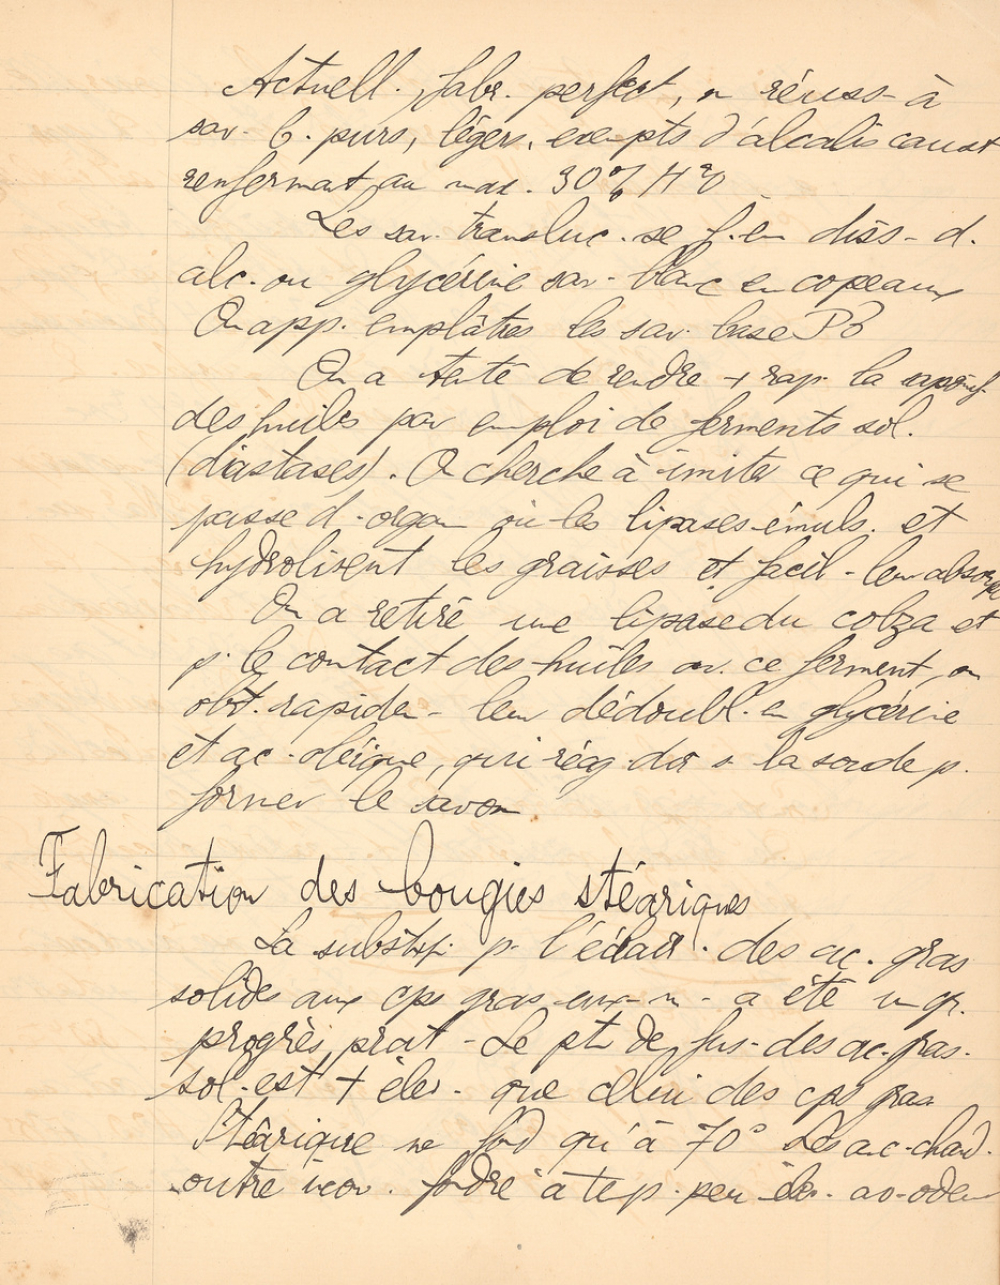 Actuell. fabr. perfect, on réuss- à
sav. b. purs, légers, exempts d'alcalis caust
renfermant au max. 30% H²O
Les sav. transluc. se f. en diss- d.
alc. ou glycérine sav- blanc en copeaux
On app. emplâtres les sav. base Pb
On a tenté de rendre + rap. la saponif
des huiles par emploi de ferments sol.
(diastases). On cherche à imiter ce qui se
passe d. organ où les lipases émuls. et
hydrolisent les graisses et facil- leur absorp
On a retiré une lipase du colza et
p. le contact des huiles av. ce ferment, on
obt. rapidem- leur dédoubl. en glycérine
et ac. oléique, qui réag. dor s la soude p.
former le savon
Fabrication des bougies stéariques
La substit. p. l'éclair. des ac. gras
solides aux cps gras eux-m- a été un gr.
progrès prat- Le pt de fus- des ac. gras.
sol. est + élev- que celui des cps gras
Stéarique ne fond qu'à 70° Les ac. chand.
outre incov. fondre à temp. peu élev. av. odeur